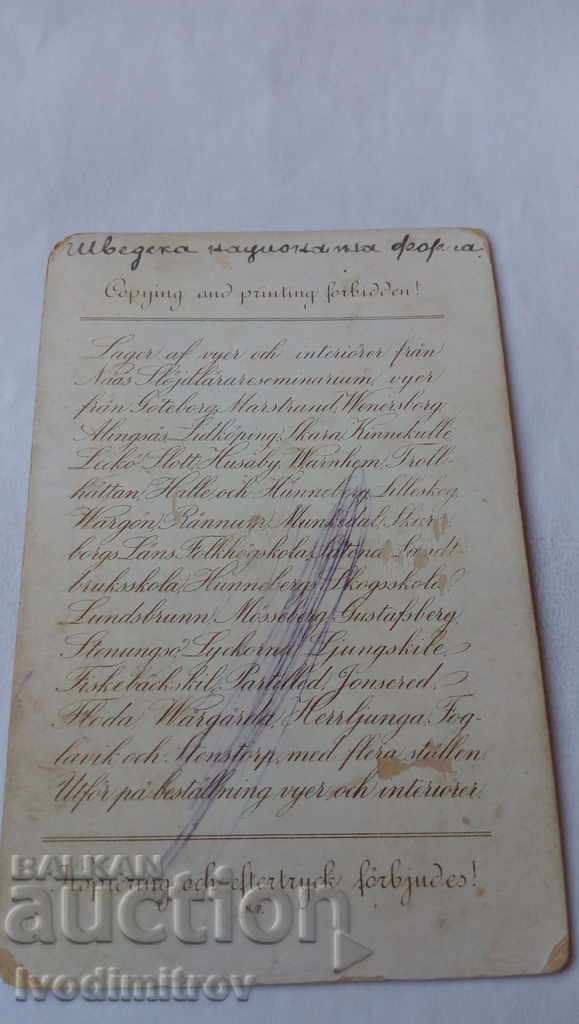 Шведска национална форма.
Copying and printing forbidden!
Lager af vyer och interiörer från
Nääs Slöjdlärareseminarium, vyer
från Göteborg, Marstrand, Wenersborg,
Alingsås, Lidköping, Skara, Kinnekulle,
Leckö Slott, Husaby, Warnhem, Troll-
hättan, Halle och Hunneberg, Lilleskog,
Wargön, Rånnum, Munkedal, Skar-
borgs Läns Folkhögskola, Landt-
bruksskola, Hunnebergs Skogsskola,
Lundsbrunn, Mösseberg, Gustafsberg,
Stenungsö, Lyckorna, Ljungskile,
Fiskebäckskil, Partilled, Jonsered,
Floda, Wårgårda, Herrljunga, Fog-
lavik och Stenstorp, med flera ställen.
Utför på beställning vyer och interiörer.
Kopiering och eftertryck förbjudes!
N.P.
BALKAN
auction
Ivodimitrov